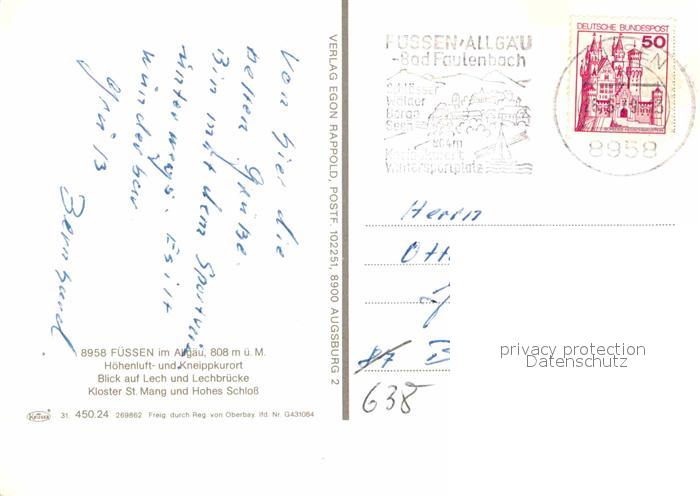 Von hier die
besten Grüße.
Bin mit dem Sportverein
unterwegs. Es ist
wunderbar
Gruß
Bernhard
8958 FÜSSEN im Allgäu, 808 m ü. M.
Höhenluft- und Kneippkurort
Blick auf Lech und Lechbrücke
Kloster St. Mang und Hohes Schloß
31. 450.24 269862 Freig. durch Reg. von Oberbay. lfd. Nr. G431084
VERLAG EGON RAPPOLD, POSTF. 102251, 8900 AUGSBURG 2
FÜSSEN/ALLGÄU
-Bad Faulenbach
Wälder
Berge
Seen
Wintersportplatz
DEUTSCHE BUNDESPOST
50
8958
Herrn
Ott
87 B
privacy protection
Datenschutz
638